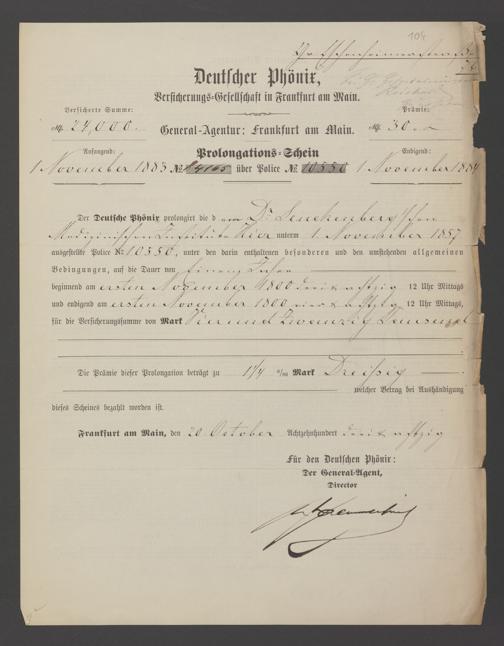 104
Deutscher Phönix,
Versicherungs-Gesellschaft in Frankfurt am Main.
Versicherte Summe: Prämie:
M. 24,000.
General-Agentur: Frankfurt am Main.
M. 30.
Prolongations-Schein
Anfangend: Endigend:
1 November 1883 № über Police № 10556 1 November 1884
Der Deutsche Phönix prolongirt die d em Dr. Senckenberg'schen
Medizinischen Institute Hier unterm 1. November 1857
ausgestellte Police № 10556, unter den darin enthaltenen besonderen und den umstehenden allgemeinen
Bedingungen, auf die Dauer von Einem Jahre
beginnend am ersten November 1800 drei & achtzig 12 Uhr Mittags
und endigend am ersten November 1800 vier & achtzig 12 Uhr Mittags,
für die Versicherungssumme von Mark Vier und Zwanzig Tausend
Die Prämie dieser Prolongation beträgt zu 1¼ 0/00 Mark Dreißig
welcher Betrag bei Aushändigung
dieses Scheines bezahlt worden ist.
Frankfurt am Main, den 20 October Achtzehnhundert drei & achtzig
Für den Deutschen Phönix:
Der General-Agent,
Director